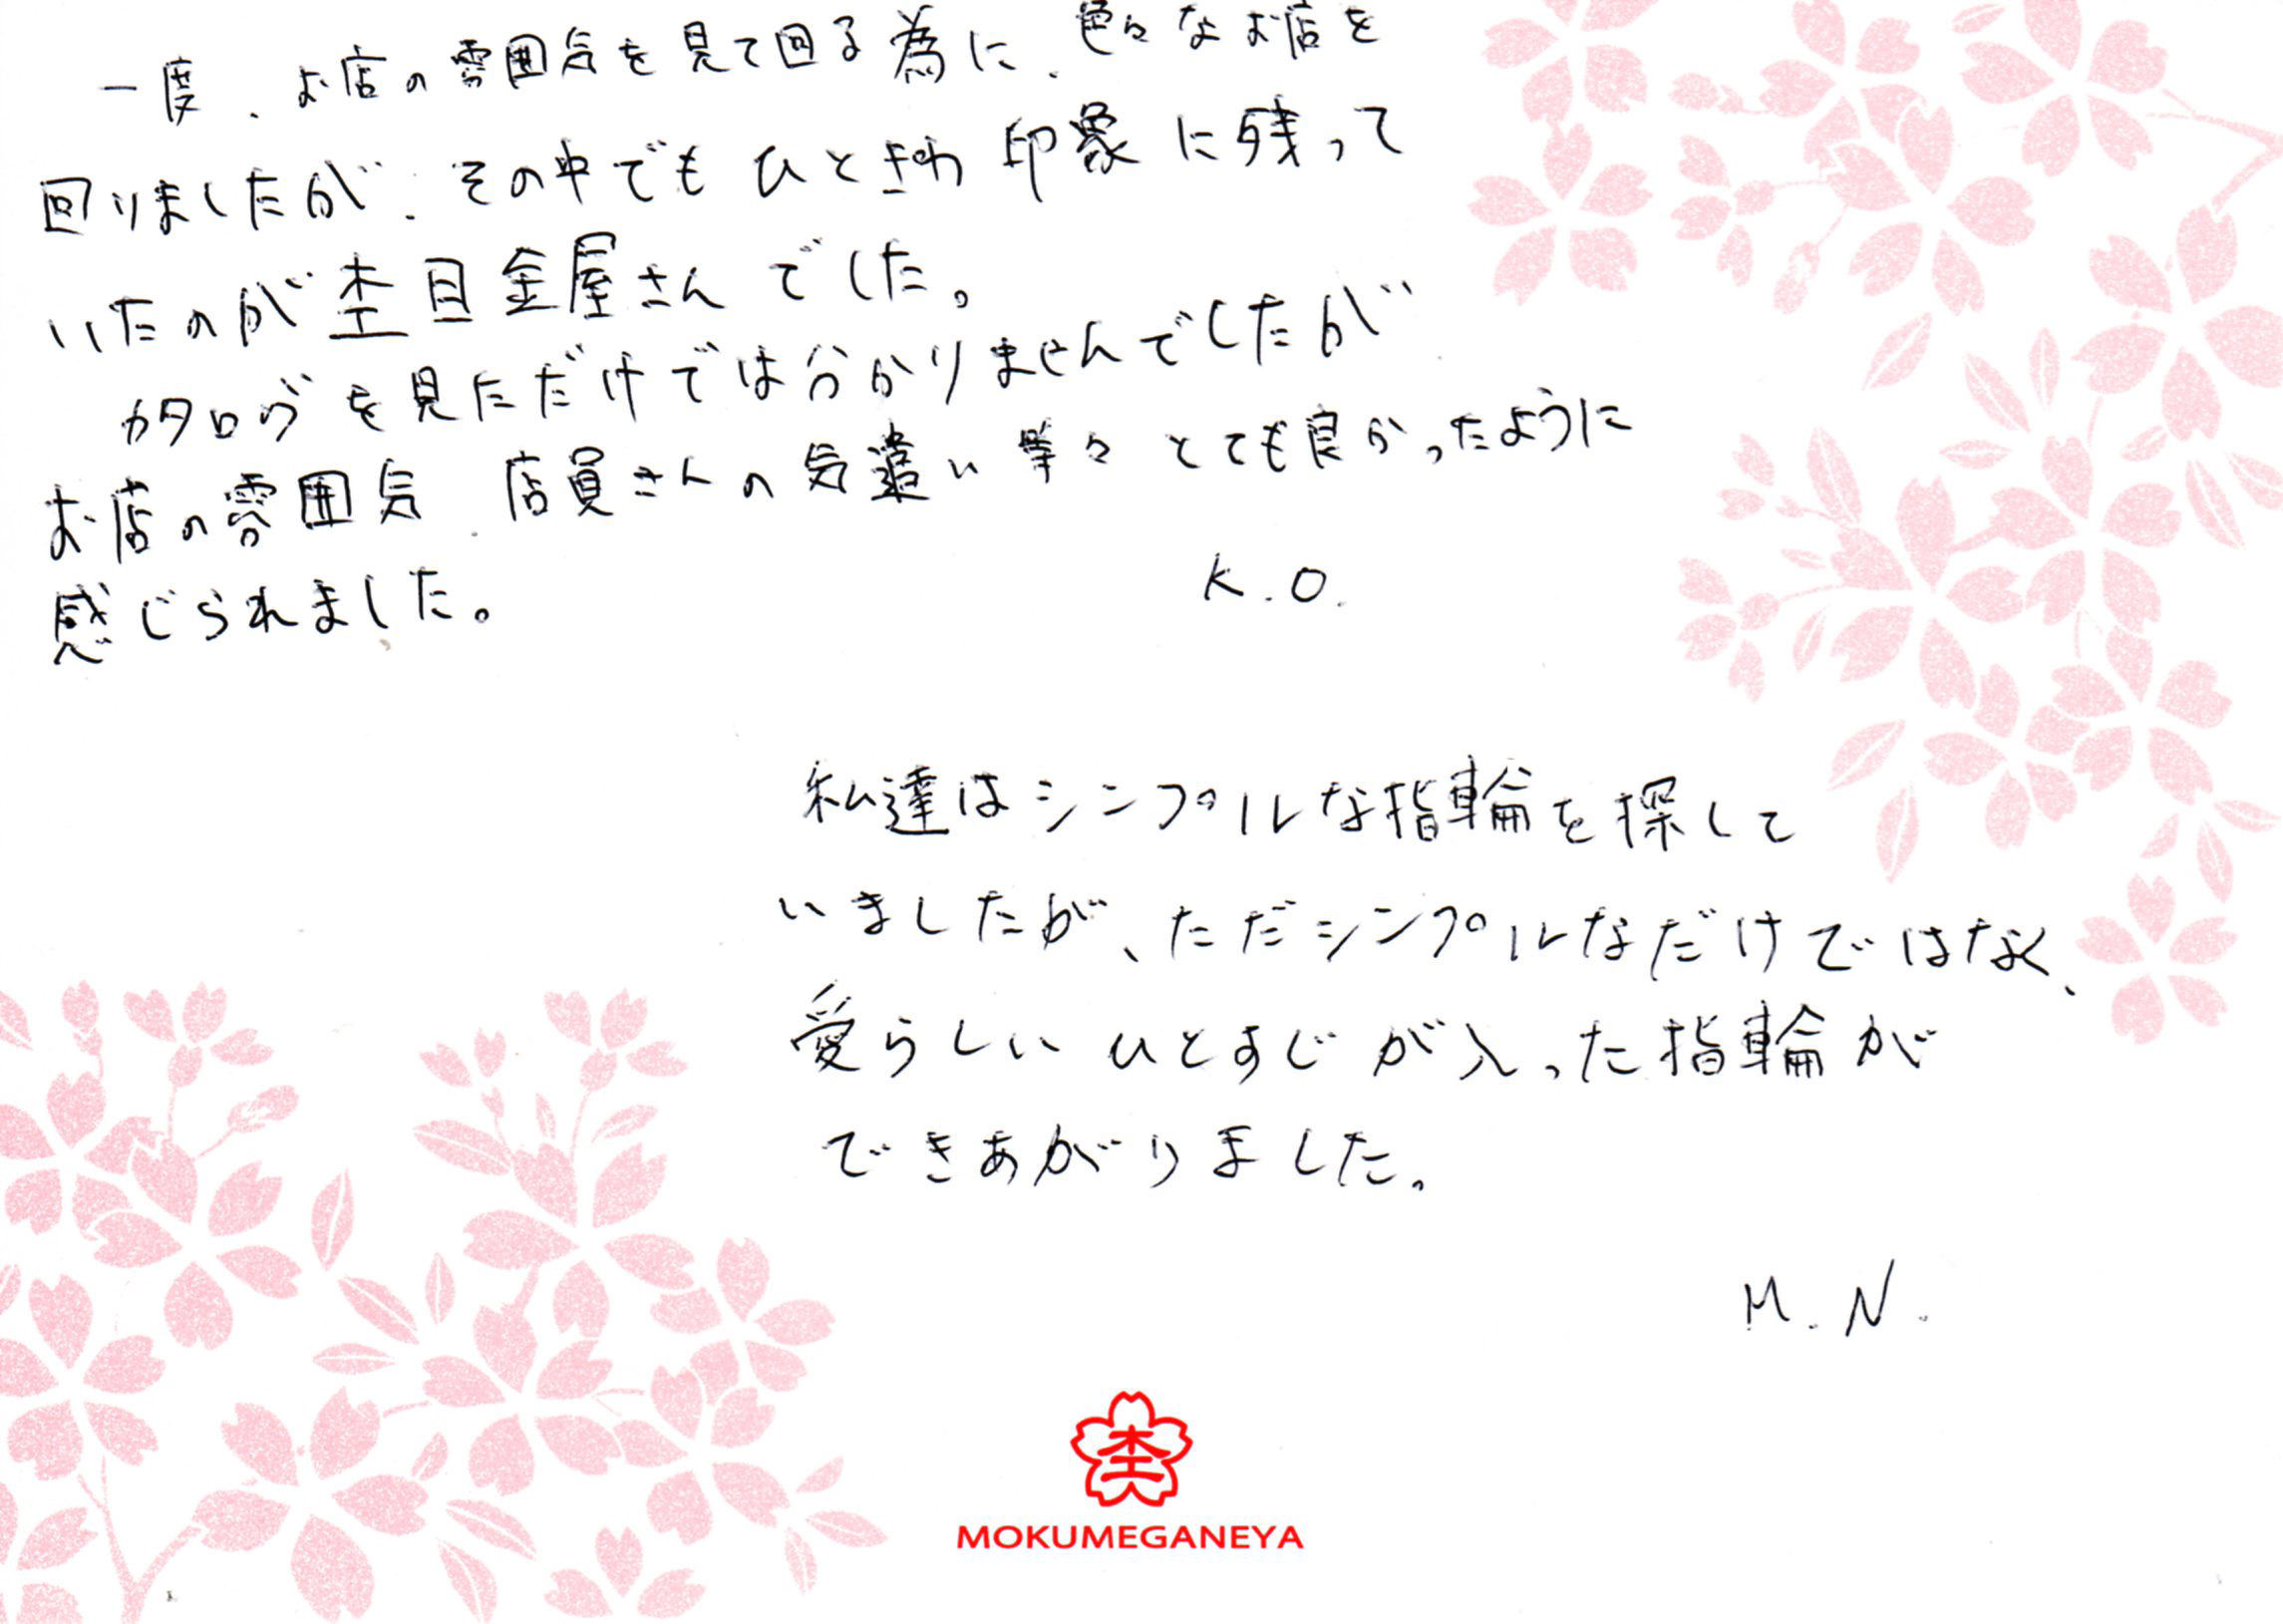 一度、お店の雰囲気を見て回る為に、色々なお店を
回りましたが、その中でもひときわ印象に残って
いたのが杢目金屋さんでした。
カタログを見ただけでは分かりませんでしたが
お店の雰囲気、店員さんの気遣い等々とても良かったように
感じられました。
K.O.
私達はシンプルな指輪を探して
いましたが、ただシンプルなだけではなく、
愛らしいひとすじが入った指輪が
できあがりました。
M.N.
杢
MOKUMEGANEYA